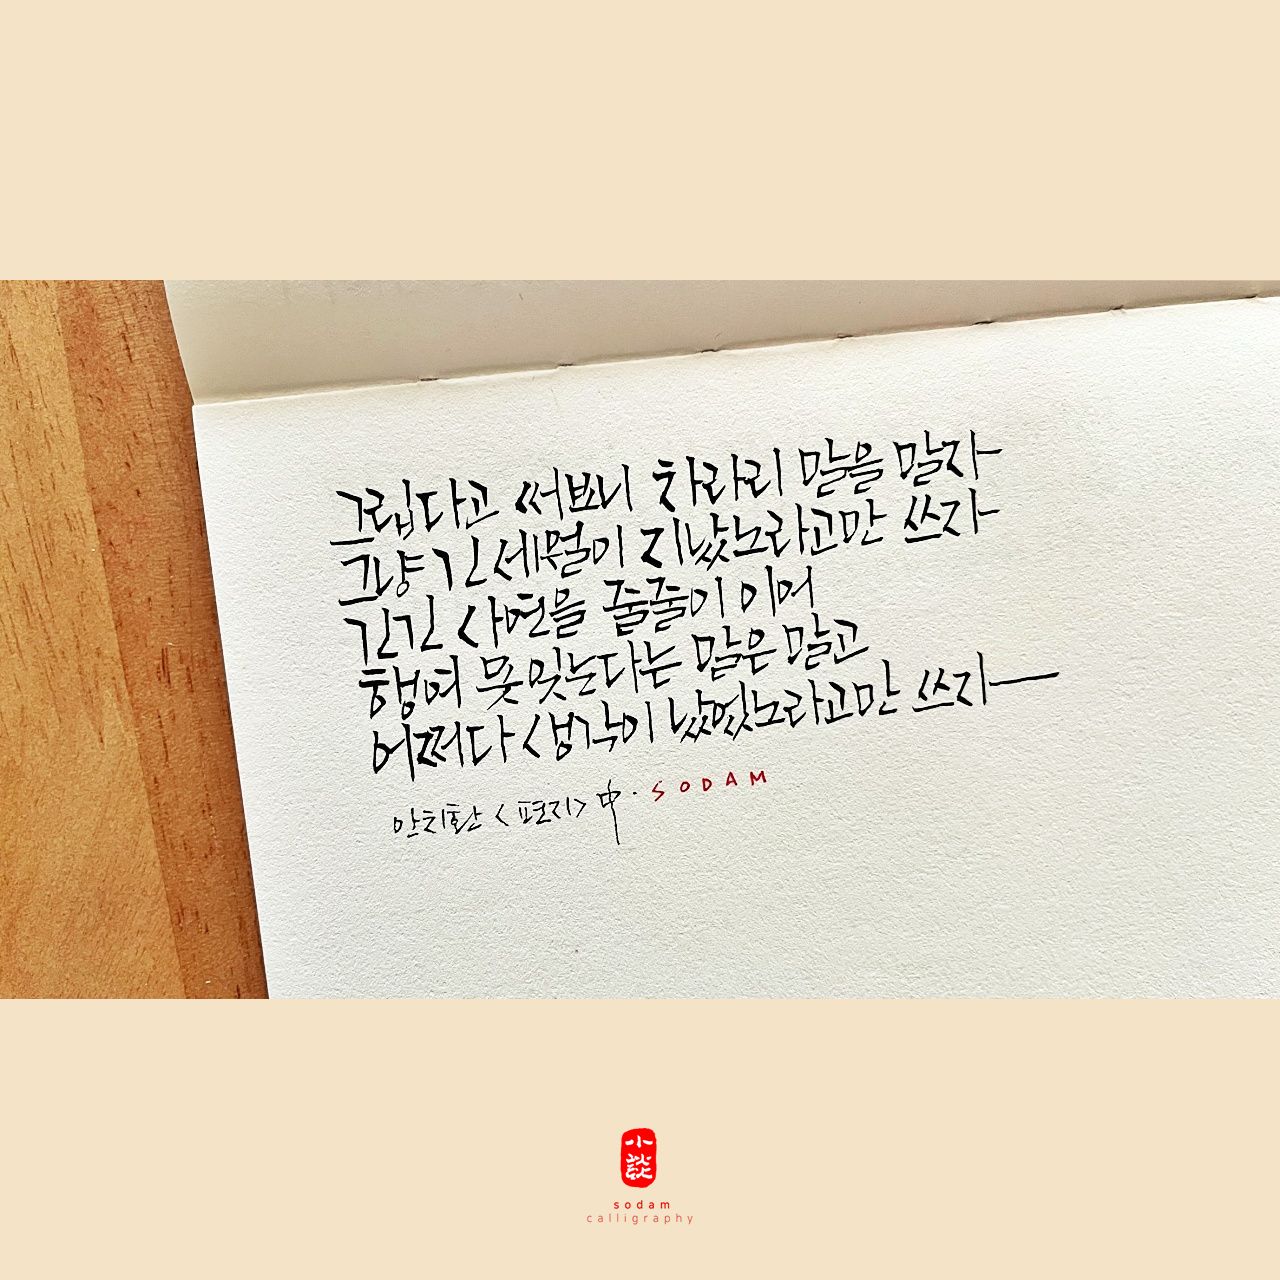 그립다고 써보니 차라리 말을 말자
그냥 긴 세월이 지났노라고만 쓰자
긴긴 사연을 줄줄이 이어
행여 못잊는다는 말은 말고
어쩌다 생각이 났었노라고만 쓰자
안치환 <편지> 中 · SODAM
小談
sodam
calligraphy